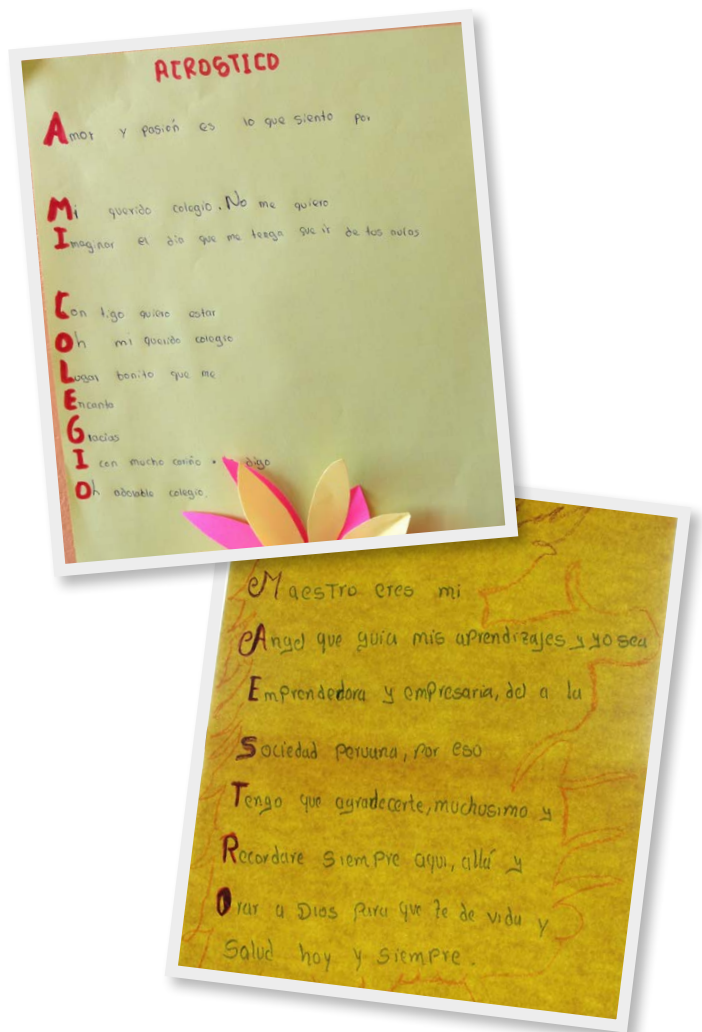 ACROSTICO
Amor y pasión es lo que siento por
Mi querido colegio. No me quiero
Imaginar el dia que me tenga que ir de tus aulas
Con tigo quiero estar
Oh mi querido colegio
Lugar bonito que me
Encanta
Gracias
I con mucho cariño digo
Oh adorable colegio.
Maestro eres mi
Angel que guia mis aprendizajes y yo sea
Emprendedora y empresaria, del a la
Sociedad peruana, por eso
Tengo que agradecerte, muchusimo y
Recordare siempre aqui, allá y
Orar a Dios para que te de vida y
Salud hoy y siempre.